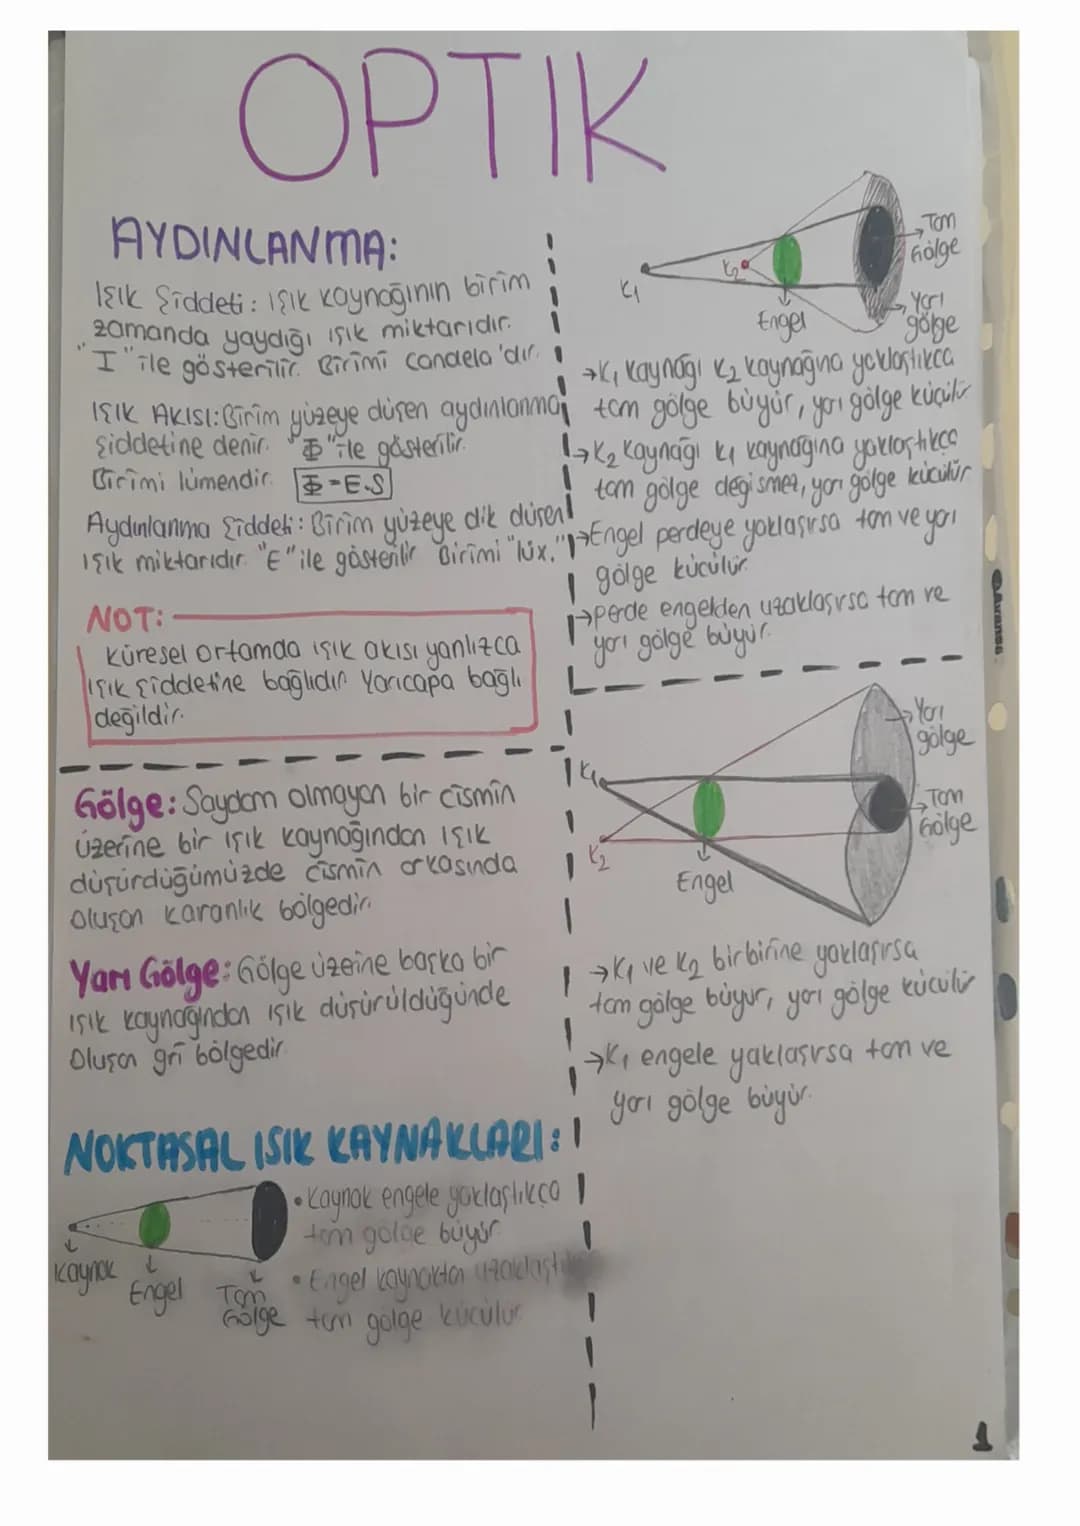 OPTIK
AYDINLANMA:
Işık Şiddeti: Işık kaynağının birim
zamanda yaydığı ışık miktarıdır.
"I" ile gösterilir. Birimi candela'dır.
IŞIK AKISI: Birim yüzeye düşen aydınlanma
şiddetine denir. "Φ" ile gösterilir.
Birimi lümendir. Φ=E.S
Aydınlanma Şiddeti: Birim yüzeye dik düşen
ışık miktarıdır. "E" ile gösterilir Birimi "lüx."
NOT:
Küresel ortamda ışık akısı yanlızca
ışık şiddetine bağlıdır. Yarıcapa bağlı
değildir.
Gölge: Saydam olmayan bir cismin
üzerine bir ışık kaynağından ışık
düşürdüğümüzde cismin arkasında
oluşan karanlık bölgedir.
Yarı Gölge: Gölge üzerine başka bir
ışık kaynağından ışık düşürüldüğünde
oluşan gri bölgedir.
NOKTASAL ISIK KAYNAKLARI:
Kaynak
Engel
Tam
Gölge
• Kaynak engele yaklaştıkça
tam gölge büyür
• Engel kaynaktan
tam gölge küçülür
K1
K2
Engel
Tam
Gölge
Yarı
gölge
→K1 kaynağı K2 kaynağına yaklaştıkca
tam gölge büyür, yarı gölge küçülür
→K2 kaynağı K1 kaynağına yaklaştıkça
tam gölge değişmez, yarı gölge kücülür
→Engel perdeye yaklaşırsa tam ve yarı
gölge kücülür
→perde engelden uzaklaşırsa tam ve
yarı gölge büyür.
K1
K2
Engel
Yarı
gölge
Tam
Gölge
→K1 ve K2 birbirine yaklaşırsa
tam gölge büyür, yarı gölge kücülür
→K1 engele yaklaşırsa tam ve
yarı gölge büyür.
1